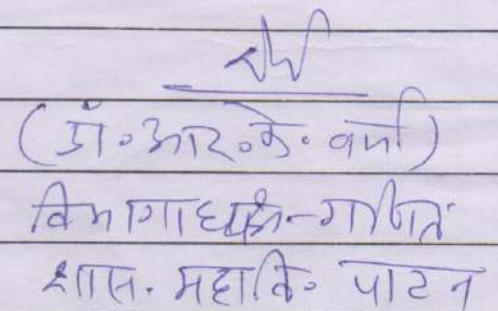 (डॉ॰आर॰के॰ वर्मा)
विभागाध्यक्ष-गणित
शास. महावि॰ पाटन